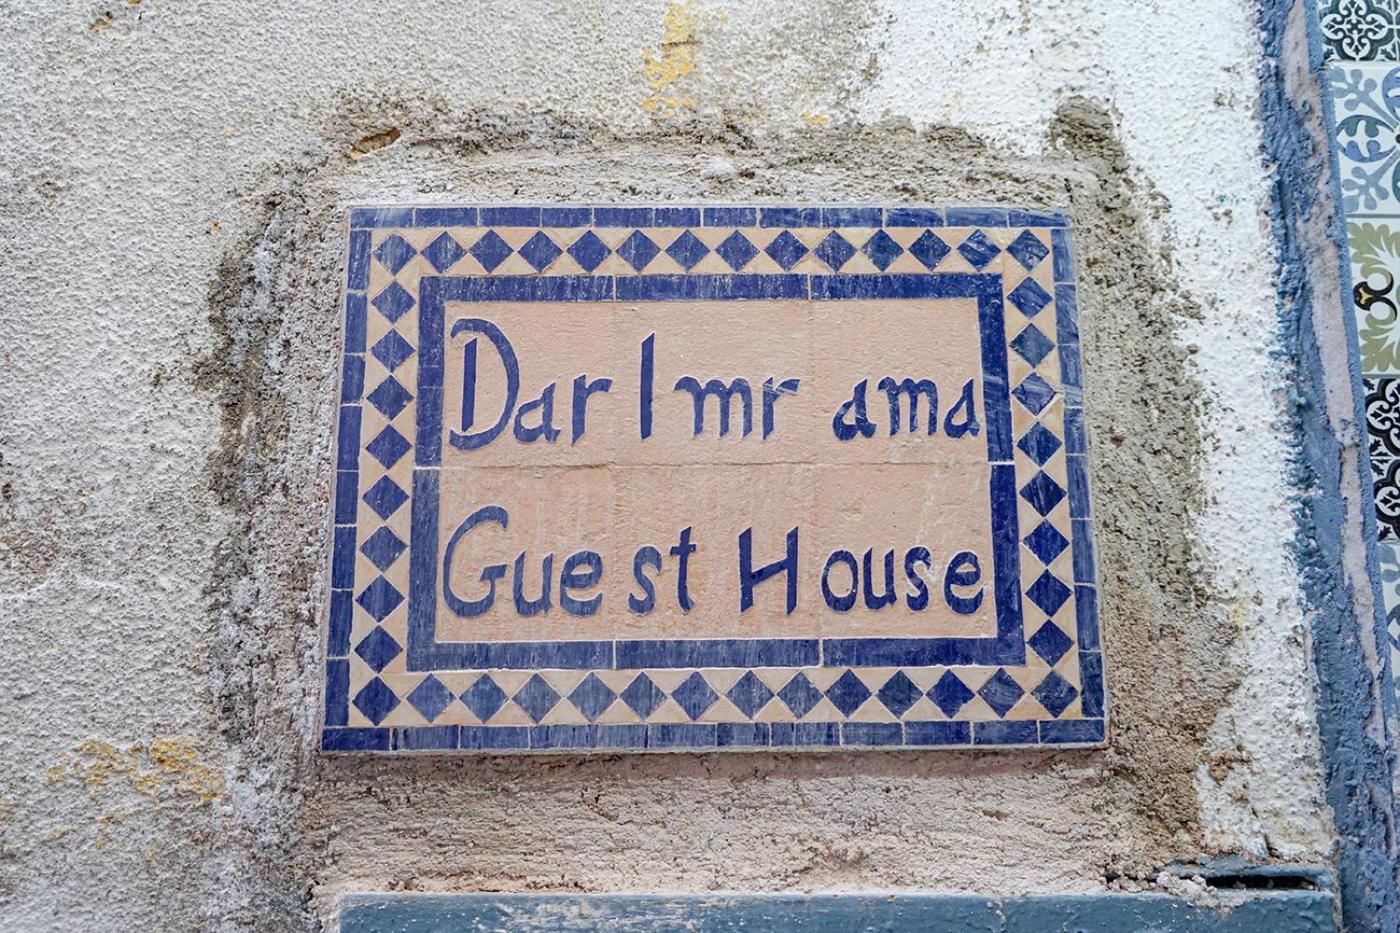 Dar Imr ama
Guest House